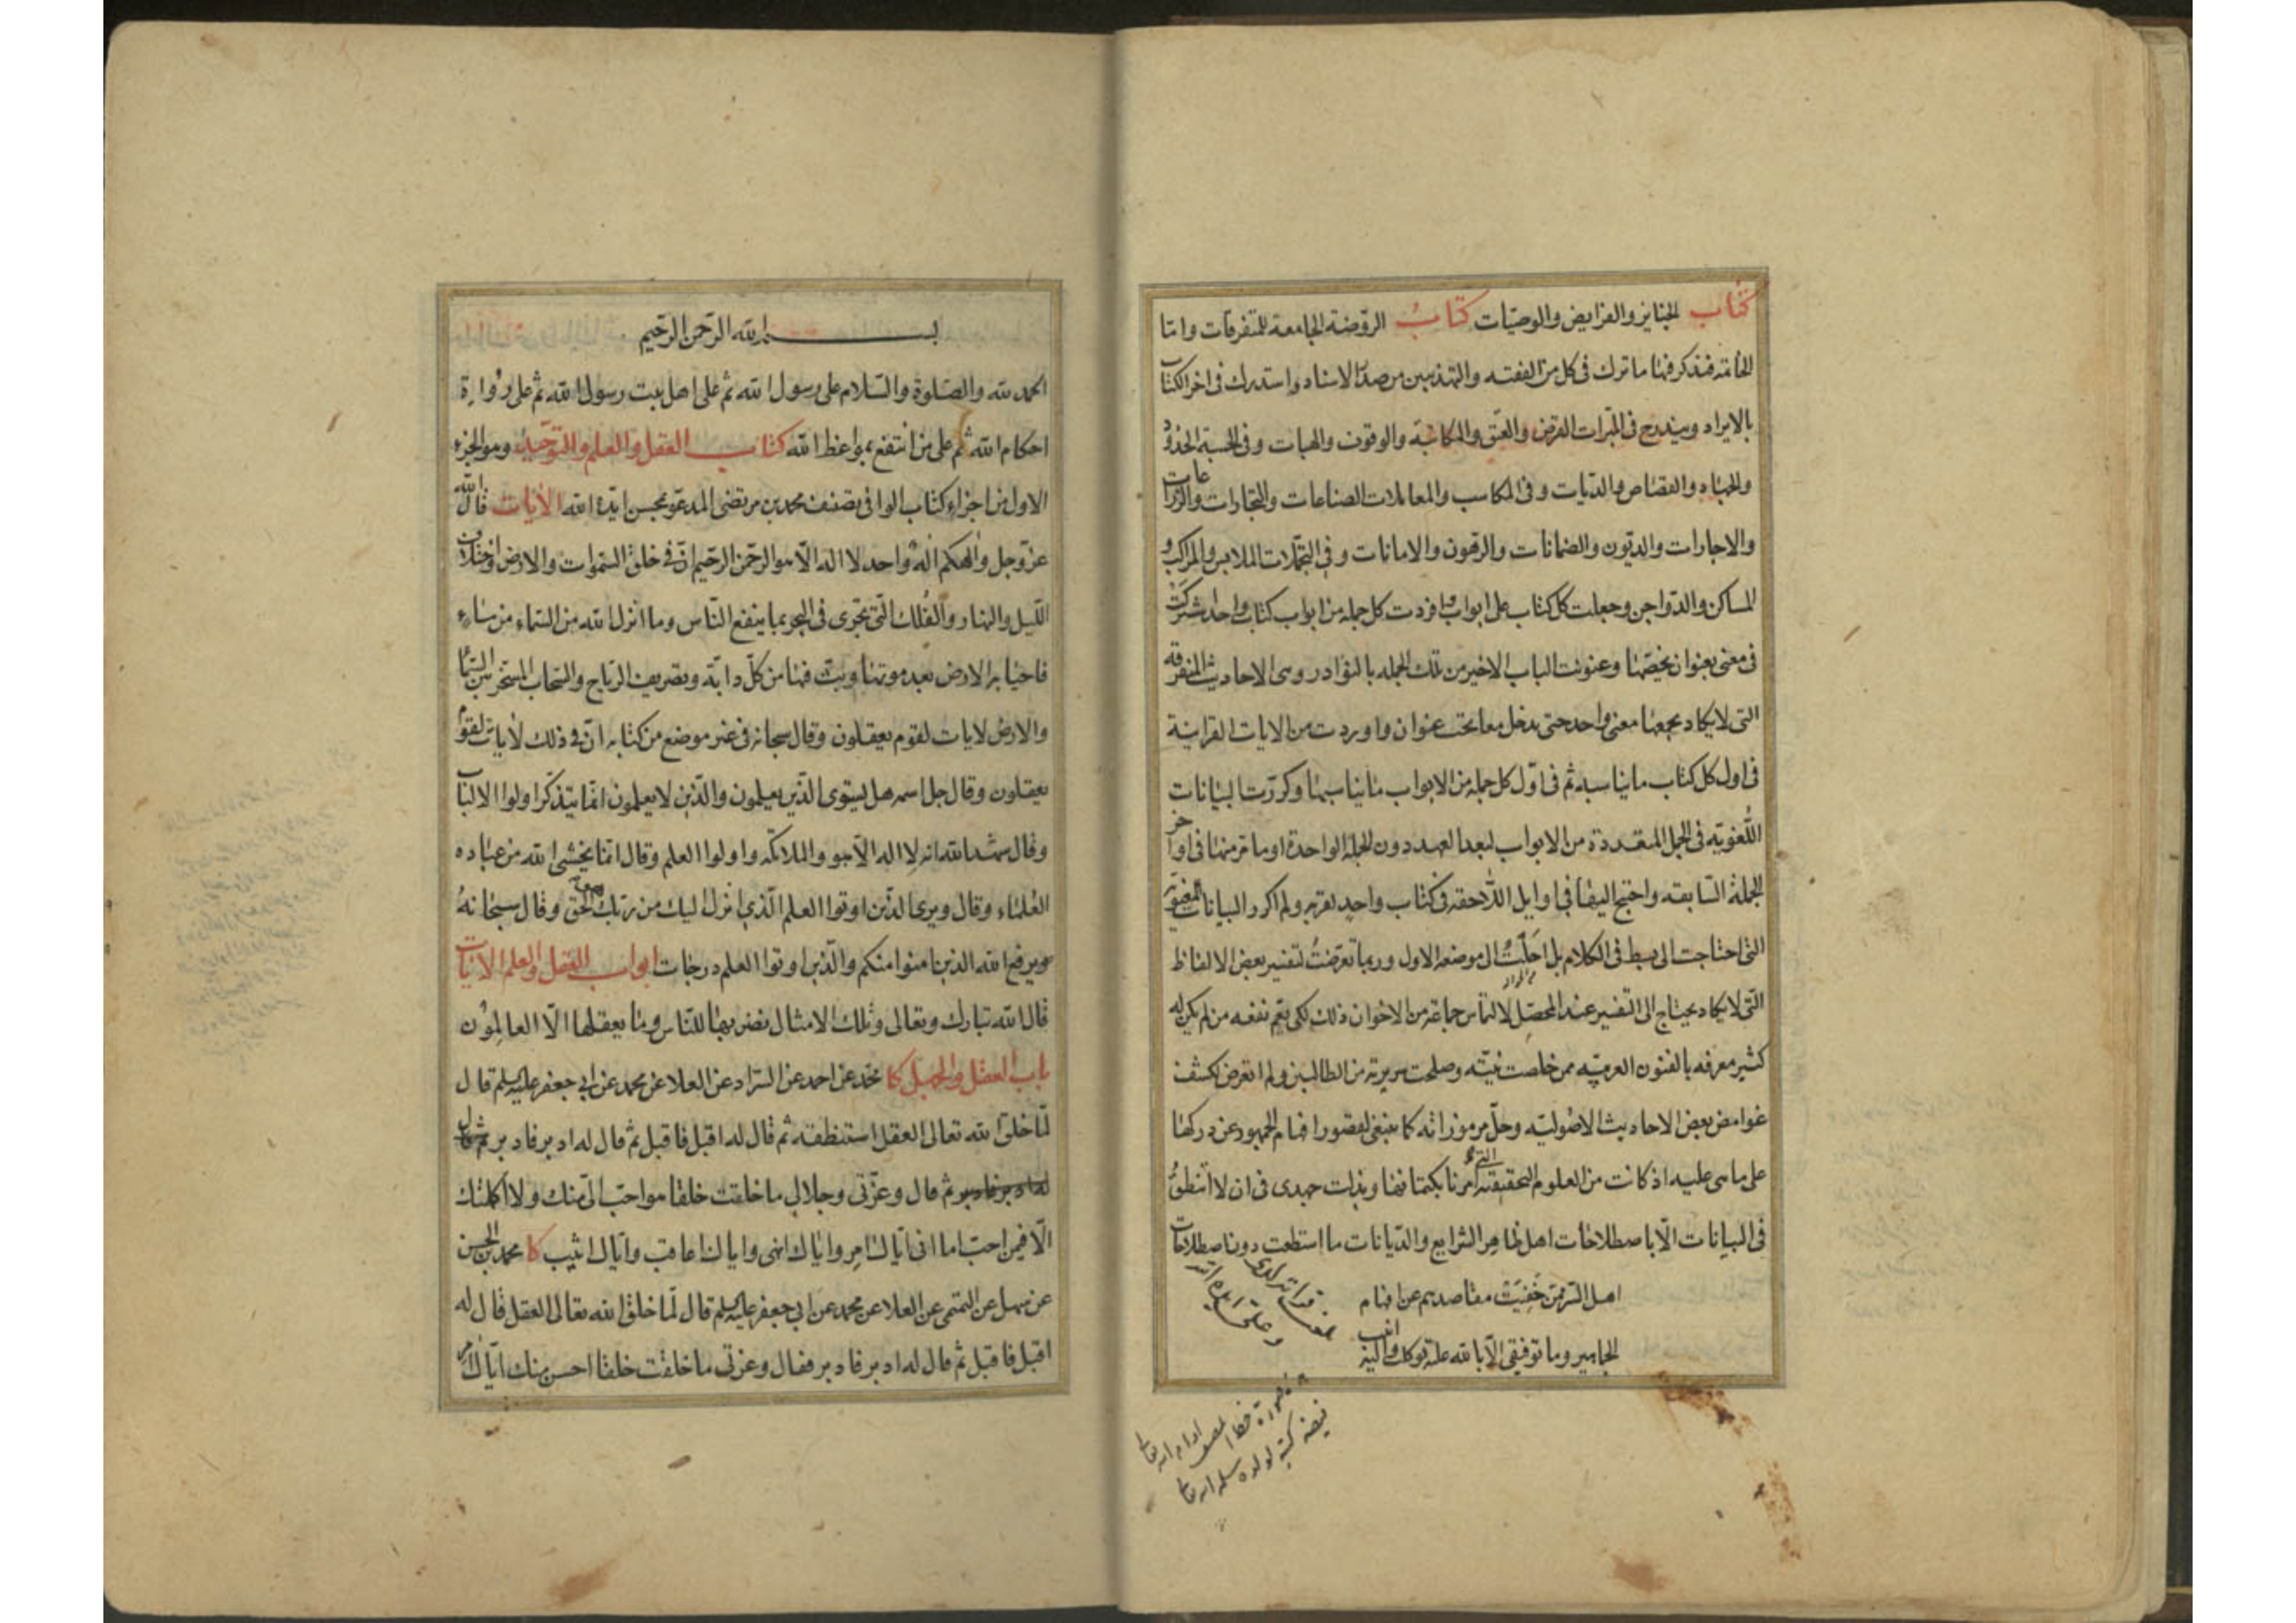 كتاب الجنايز والفرايض والوصيّات كتاب الروضة الجامعة للمتفرقات وامّا
الخاتمة فنذكر فيها ما ترك في كل من الفقيه والتهذيبين من صدر الاسناد واستدرك في اخر الكتاب
بالايراد ويندرج في المبرات القرض والعتق والمكاتبة والوقوف والهبات وفي الحسبة الحدود
والجهاد والقصاص والديات وفي المكاسب والمعاملات الصناعات والتجارات والزراعات
والاجارات والديون والضمانات والرهون والامانات وفي التجملات الملابس والمراكب و
المساكن والدواجن وجعلت كل كتاب على ابواب وافردت كل جملة من ابواب كتاب واحد شركت
في معنى بعنوان يخصّها وعنونت الباب الاخير من تلك الجملة بالنوادر وهى الاحاديث المتفرقة
التى لا يكاد يجمعها معنى واحد حتى يدخل معا تحت عنوان واوردت من الايات القرانية
في اول كل كتاب ما يناسبه ثم في اوّل كل جملة من الابواب ما يناسبها وكررت البيانات
اللغوية في الجمل المتعددة من الابواب لبعد العهد دون الجملة الواحدة او ما قرّ منها في اواخر
الجملة السابقة واحتيج اليها في اوايل اللاحقة في كتاب واحد لقربه ولم اكرر البيانات المعنوية
التى احتاجت الى بسط في الكلام بل احلت الى موضعه الاول وربما تعرضت لتفسير بعض الالفاظ
التى لا يكاد يحتاج الى التفسير عند المحصّل لالتماس جماعة من الاخوان ذلك لكى يعم نفعه من لم يكن له
كثير معرفة بالفنون العربية ممن خلصت نيته وصلحت سريرته من الطالبين ولم اتعرض لكشف
غوامض بعض الاحاديث الاصولية وحلّ مرموزاته كما ينبغى لقصور افهام الجمهور عن دركها
على ما هى عليه اذ كانت من العلوم الحقيقية التى امرنا بكتمانها وبذلت جهدى في ان لا انطق
في البيانات الّا باصطلاحات اهل ظاهر الشرايع والديانات ما استطعت دون اصطلاحات
اهل السرّ ممن خفيت مقاصدهم عن افهام
الجماهير وما توفيقى الّا بالله عليه توكلت واليه انيب
صورة خط المصنف ادام الله
كتبه لولده سلمه الله
بسم الله الرحمن الرحيم
الحمد لله والصلوة والسلام على رسول الله ثم على اهل بيت رسول الله ثم على رواة
احكام الله ثم على من انتفع بمواعظ الله كتاب العقل والعلم والتوحيد وهو الجزء
الاول من اجزاء كتاب الوافي تصنيف محمد بن مرتضى المدعو بمحسن ايّده الله الايات قال الله
عزّ وجل والهكم اله واحد لا اله الّا هو الرحمن الرحيم انّ في خلق السموات والارض واختلاف
الليل والنهار والفلك التى تجرى في البحر بما ينفع الناس وما انزل الله من السماء من ماء
فاحيا به الارض بعد موتها وبثّ فيها من كلّ دابّة وتصريف الرياح والسحاب المسخّر بين السماء
والارض لايات لقوم يعقلون وقال سبحانه في غير موضع من كتابه انّ في ذلك لايات لقوم
يعقلون وقال جل اسمه هل يستوى الذين يعلمون والذين لا يعلمون انّما يتذكر اولوا الالباب
وقال شهد الله انه لا اله الّا هو والملائكة واولوا العلم وقال انما يخشى الله من عباده
العلماء وقال ويرى الذين اوتوا العلم الذي انزل اليك من ربك هو الحق وقال سبحانه
يرفع الله الذين امنوا منكم والذين اوتوا العلم درجات ابواب العقل والعلم الايات
قال الله تبارك وتعالى وتلك الامثال نضربها للناس وما يعقلها الّا العالمون
باب العقل والجهل كا محمد عن احمد عن السرّاد عن العلا عن محمد عن ابي جعفر عليه السلم قال
لمّا خلق الله تعالى العقل استنطقه ثم قال له اقبل فاقبل ثم قال له ادبر فادبر ثم قال
له ادبر فادبر ثم قال وعزّتى وجلالى ما خلقت خلقا هو احب الىّ منك ولا اكملتك
الّا فيمن احب اما انى ايّاك امر واياك انهى واياك اعاقب وايّاك اثيب كا محمد بن الحسن
عن سهل عن التميمى عن العلا عن محمد عن ابي جعفر عليه السلم قال لمّا خلق الله تعالى العقل قال له
اقبل فاقبل ثم قال له ادبر فادبر فقال وعزتى ما خلقت خلقا احسن منك ايّاك امر